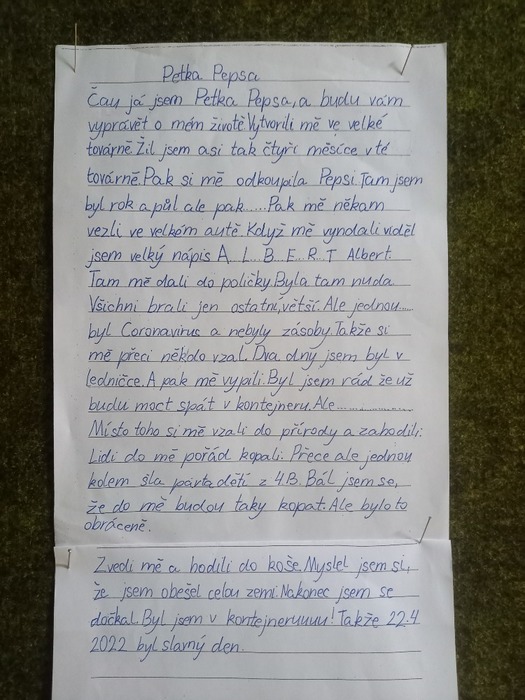 Petka Pepsa
Čau já jsem Petka Pepsa, a budu vám
vyprávět o mém životě. Vytvořili mě ve velké
továrně. Žil jsem asi tak čtyři měsíce v té
továrně. Pak si mě odkoupila Pepsi. Tam jsem
byl rok a půl ale pak..... Pak mě někam
vezli ve velkém autě. Když mě vyndali viděl
jsem velký nápis A.. L... B... E.. R.. T Albert.
Tam mě dali do poličky. Byla tam nuda.
Všichni brali jen ostatní, větší. Ale jednou.....
byl Coronavirus a nebyly zásoby. Takže si
mě přeci někdo vzal. Dva dny jsem byl v
ledničce. A pak mě vypili. Byl jsem rád že už
budu moct spát v kontejneru. Ale................
Místo toho si mě vzali do přírody a zahodili.
Lidi do mě pořád kopali. Přece ale jednou
kolem šla parta dětí z 4.B. Bál jsem se,
že do mě budou taky kopat. Ale bylo to
obráceně.
Zvedi mě a hodili do koše. Myslel jsem si,
že jsem obešel celou zemi. Nakonec jsem se
dočkal. Byl jsem v kontejneruuuu! Takže 22.4
2022 byl slavný den.